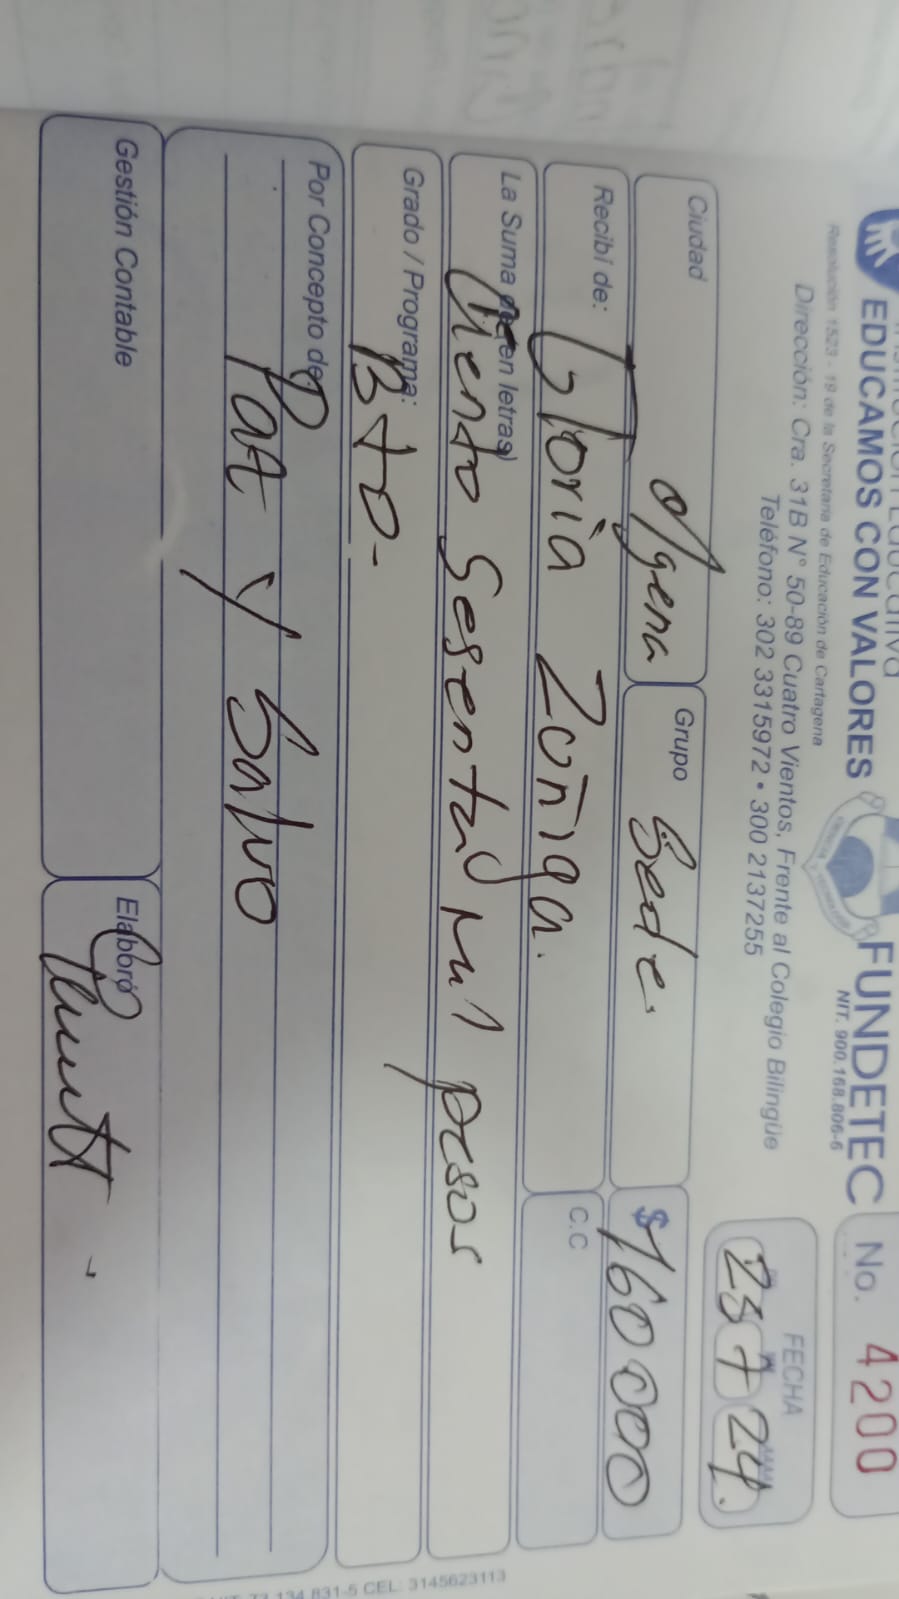 Institución Educativa
EDUCAMOS CON VALORES
FUNDETEC
No. 4200
Resolución 1523 - 19 de la Secretaria de Educación de Cartagena
NIT. 900.168.806-6
Dirección: Cra. 31B N° 50-89 Cuatro Vientos, Frente al Colegio Bilingüe
Teléfono: 302 3315972 • 300 2137255
FECHA
23 7 24.
Ciudad C/gena
Grupo Sede.
$ 160 000
Recibí de: Gloria Zuñiga.
C.C
La Suma de (en letras) Ciento Sesenta mil pesos
Grado / Programa: Bto.
Por Concepto de: Paz y Salvo
Gestión Contable
Elaboró
73.134.831-5 CEL: 3145623113